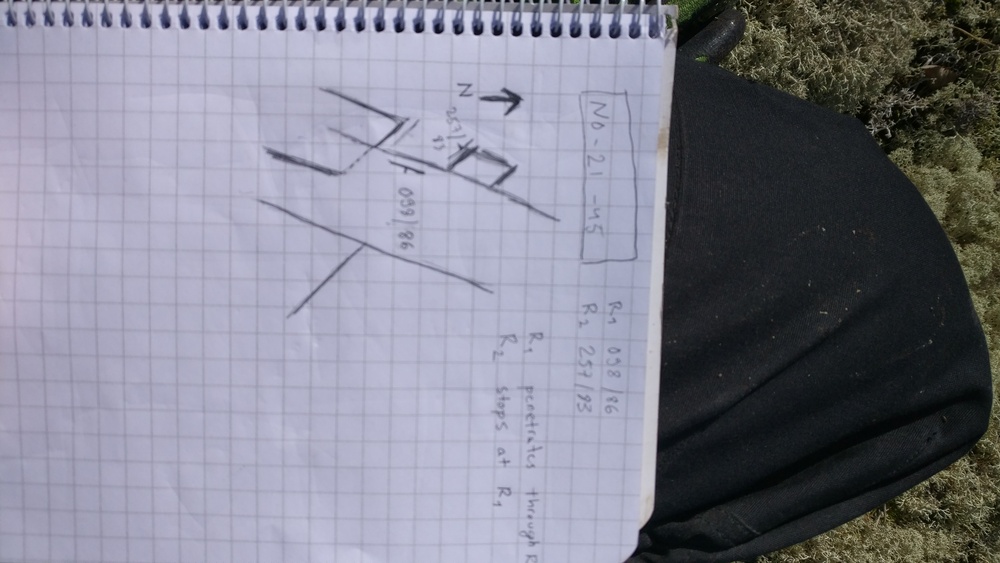 NO-21-45
R1 098/86
R2 257/83
R1 penetrates through R
R2 stops at R1
N
257/
83
098/86